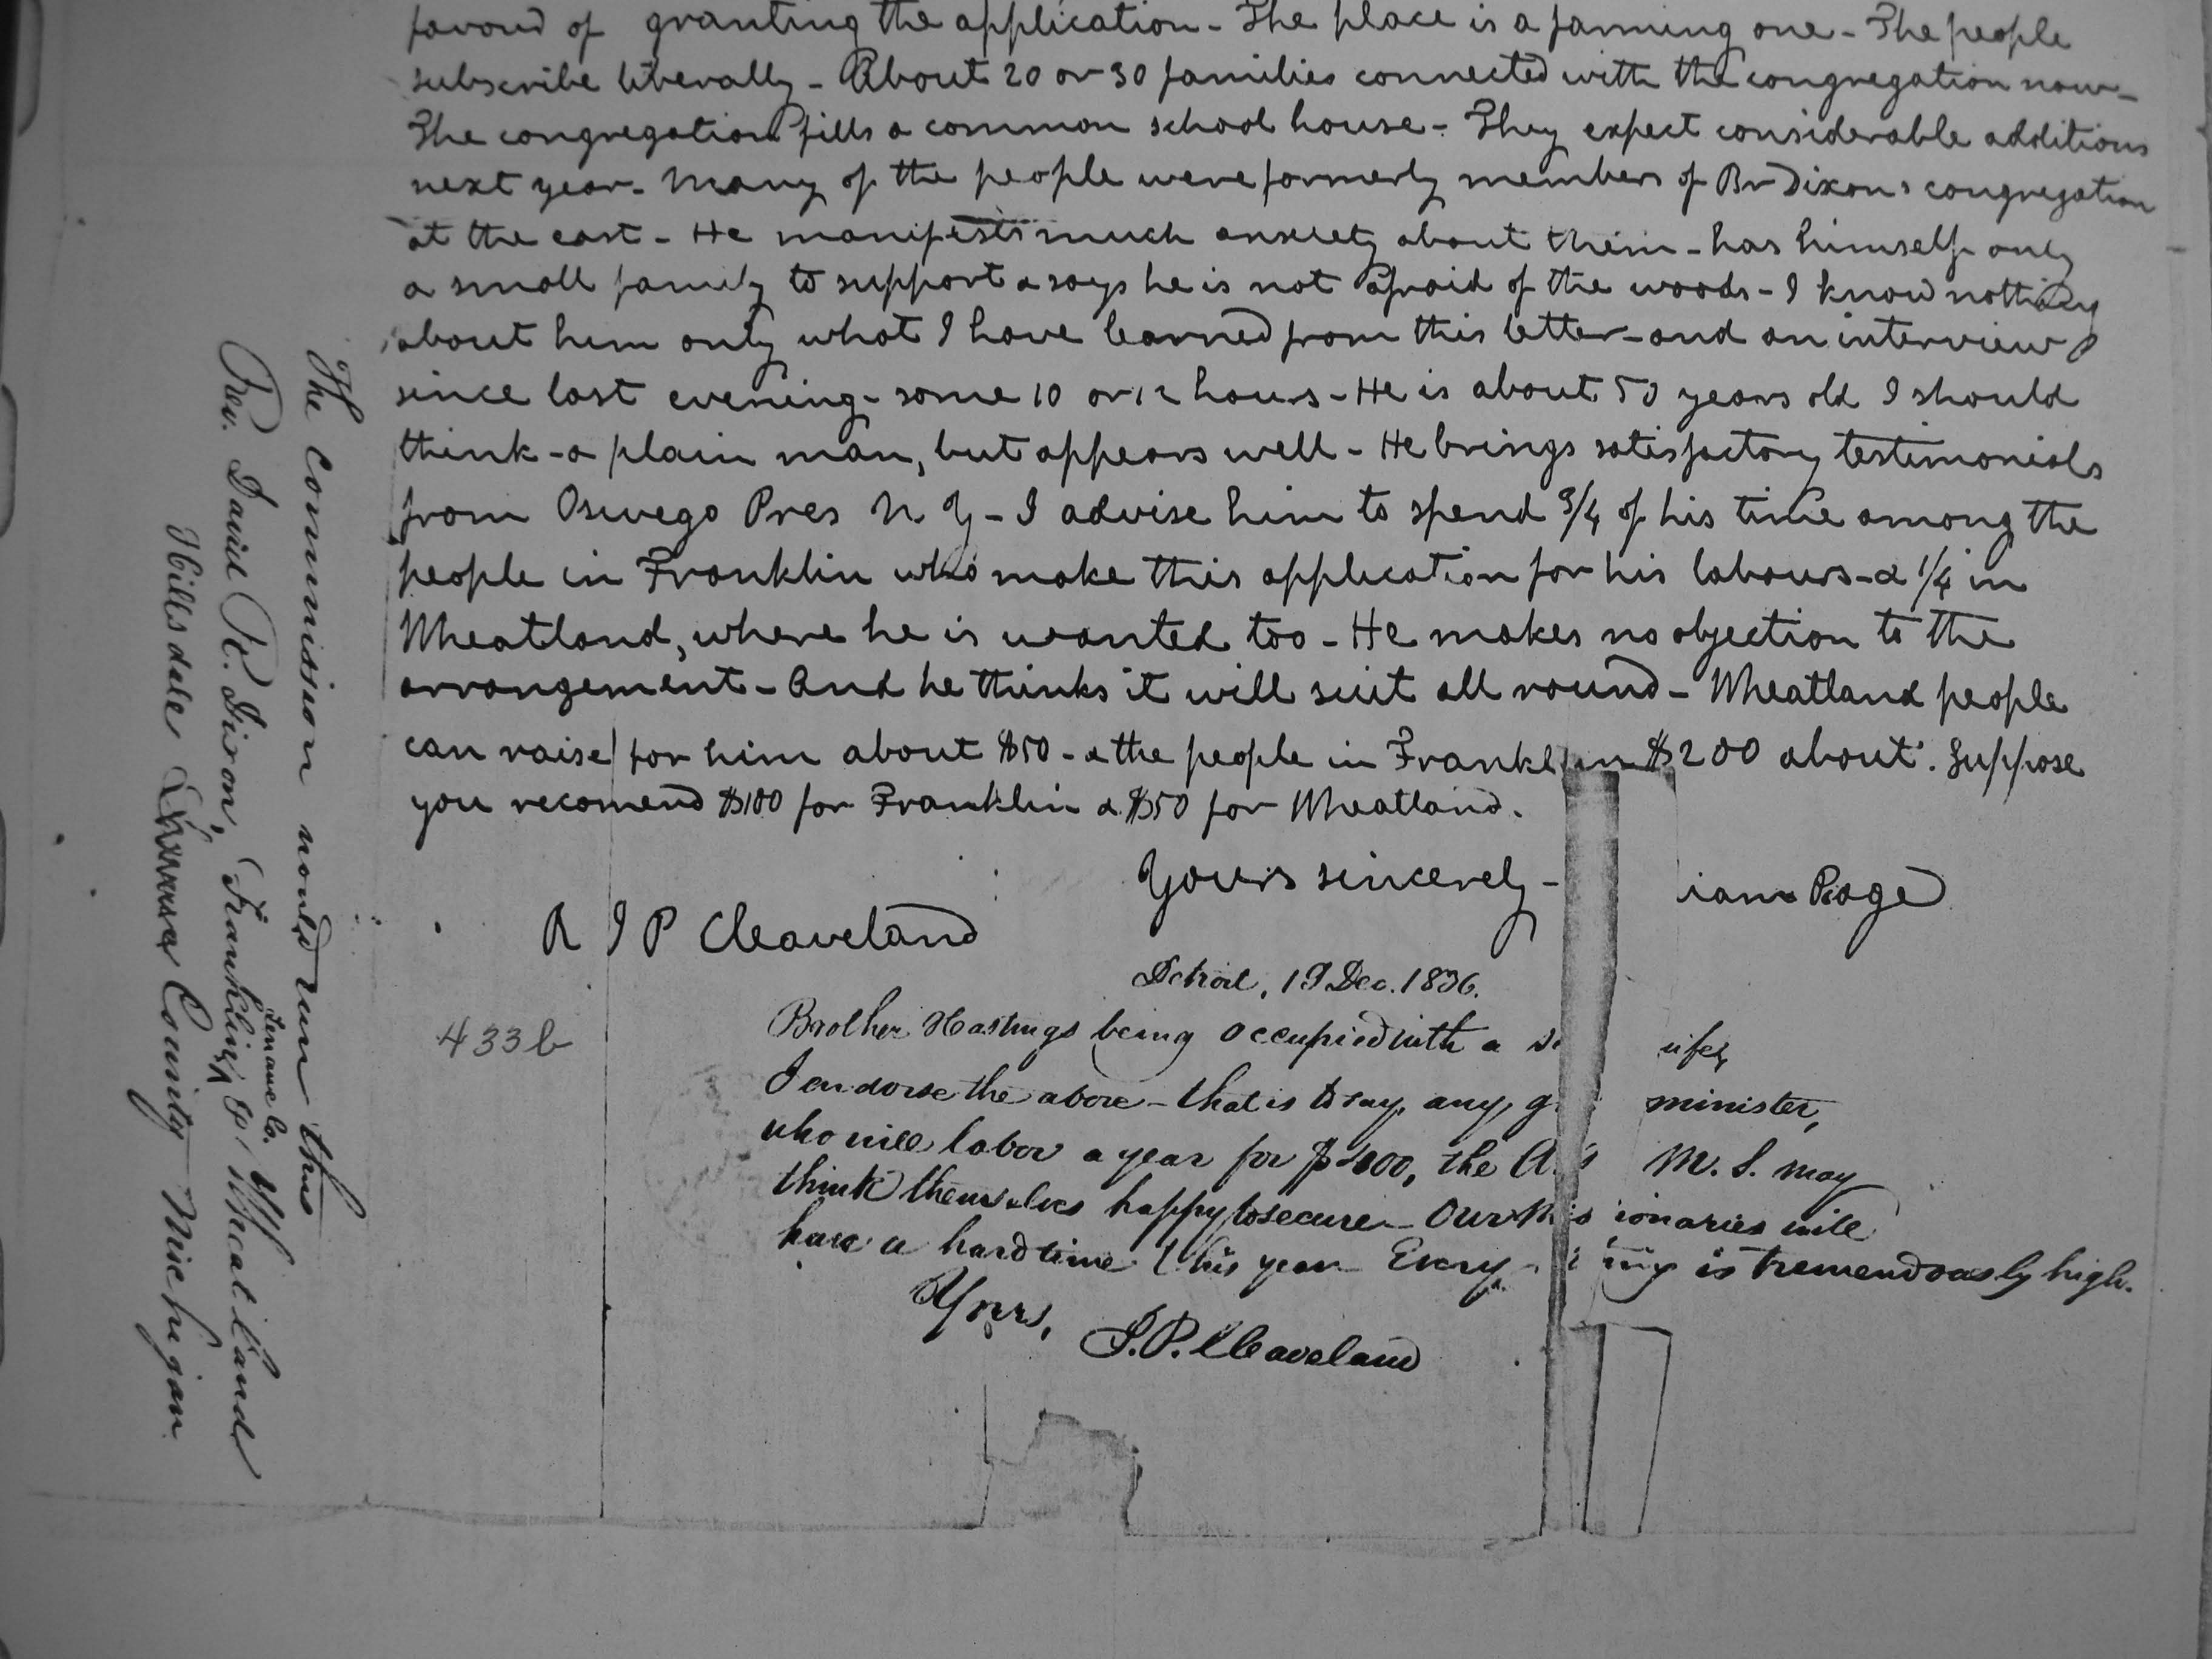 favour of granting the application - The place is a farming one - The people
subscribe liberally - About 20 or 30 families connected with the congregation now -
The congregation fills a common school house - They expect considerable additions
next year - Many of the people were formerly members of Br Dixons congregation
at the east - He manifests much anxiety about them - has himself only
a small family to support & says he is not afraid of the woods - I know nothing
about him only what I have learned from this letter - and an interview
since last evening - some 10 or 12 hours - He is about 50 years old I should
think - a plain man, but appears well - He brings satisfactory testimonials
from Oswego Pres N Y - I advise him to spend 3/4 of his time among the
people in Franklin who make this application for his labours - & 1/4 in
Wheatland, where he is wanted too - He makes no objection to the
arrangement - And he thinks it will suit all round - Wheatland people
can raise for him about $50 - & the people in Franklin $200 about. Suppose
you recomend $100 for Franklin & $50 for Wheatland.
Yours sincerely - iam Page
R J P Cleaveland
Detroit, 19 Dec. 1836.
433b
Brother Hastings being occupied with a si ife,
I endorse the above - that is to say, any g minister,
who will labor a year for $400, the A. M. S. may
think themselves happy to secure - Our Mis ionaries will
have a hard time this year - Every thing is tremendously high.
Yours,
J. P. Cleaveland
The Commission would run thus
Rev. David R. Dixon, Franklin, Lenawe Co. & Wheatland
Hillsdale County Michigan